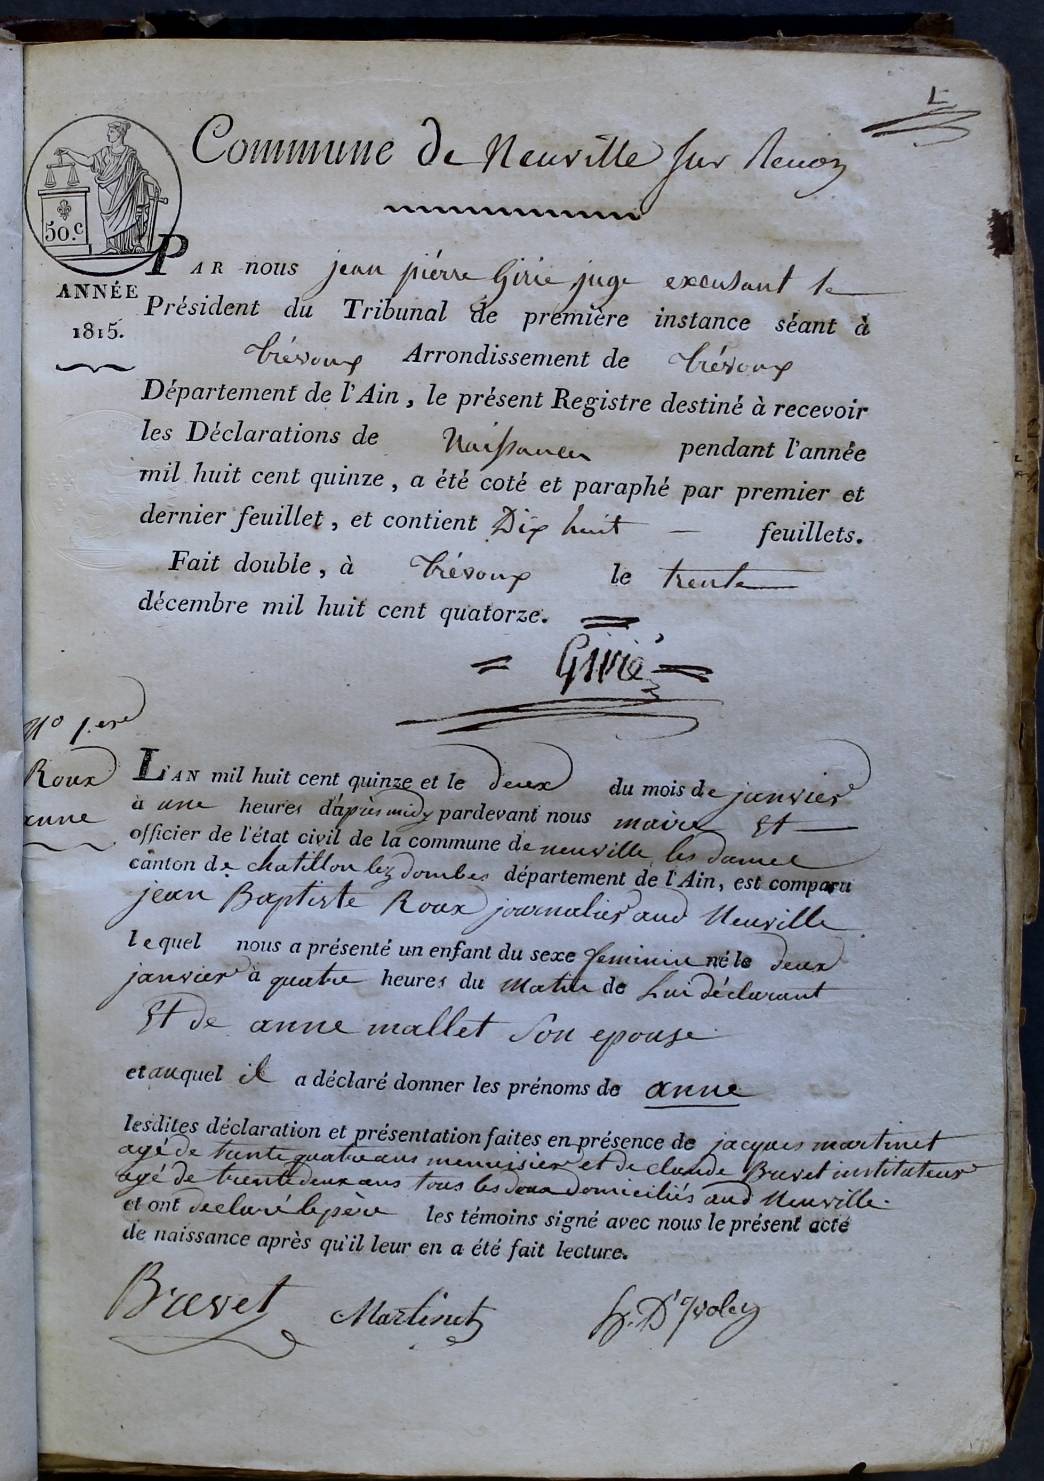 Commune de Neuville sur Renon
50.c
ANNÉE
1815.
PAR nous jean piérre Girié juge excusant le
Président du Tribunal de première instance séant à
trévoux Arrondissement de trévoux
Département de l'Ain, le présent Registre destiné à recevoir
les Déclarations de Naissances pendant l'année
mil huit cent quinze, a été coté et paraphé par premier et
dernier feuillet, et contient Dix huit — feuillets.
Fait double, à trévoux le trente
décembre mil huit cent quatorze.
Girié
No 1.ere
Roux
anne
L'AN mil huit cent quinze et le deux du mois de janvier
à une heures d'après midy pardevant nous maire Et
officier de l'état civil de la commune de neuville les dames
canton de chatillon lez dombes département de l'Ain, est comparu
jean Baptiste Roux journalier aud Neuville
lequel nous a présenté un enfant du sexe feminin né le deux
janvier à quatre heures du matin de Lui déclarant
Et de anne mallet son epouse
et auquel il a déclaré donner les prénoms de anne
lesdites déclaration et présentation faites en présence de jacques martinet
agé de trente quatre ans menuisier et de claude Brevet instituteur
agé de trente deux ans tous les deux domiciliés aud Neuville.
et ont declaré le père les témoins signé avec nous le présent acte
de naissance après qu'il leur en a été fait lecture.
Brevet Martinet